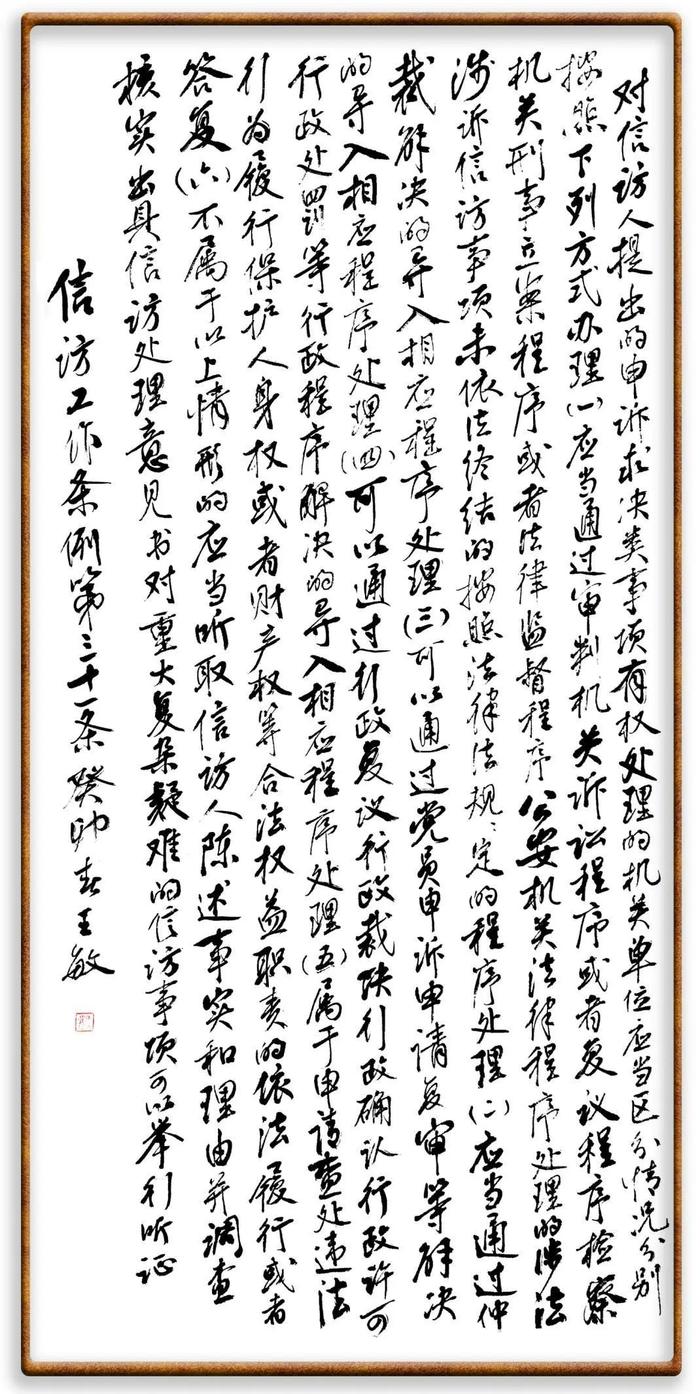 对信访人提出的申诉求决类事项有权处理的机关单位应当区分情况分别
按照下列方式办理(一)应当通过审判机关诉讼程序或者复议程序检察
机关刑事立案程序或者法律监督程序公安机关法律程序处理的涉法
涉诉信访事项未依法终结的按照法律法规规定的程序处理(二)应当通过仲
裁解决的导入相应程序处理(三)可以通过党员申诉申请复审等解决
的导入相应程序处理(四)可以通过行政复议行政裁决行政确认行政许可
行政处罚等行政程序解决的导入相应程序处理(五)属于申请查处违法
行为履行保护人身权或者财产权等合法权益职责的依法履行或者
答复(六)不属于以上情形的应当听取信访人陈述事实和理由并调查
核实出具信访处理意见书对重大复杂疑难的信访事项可以举行听证
信访工作条例第三十一条癸卯春王敏